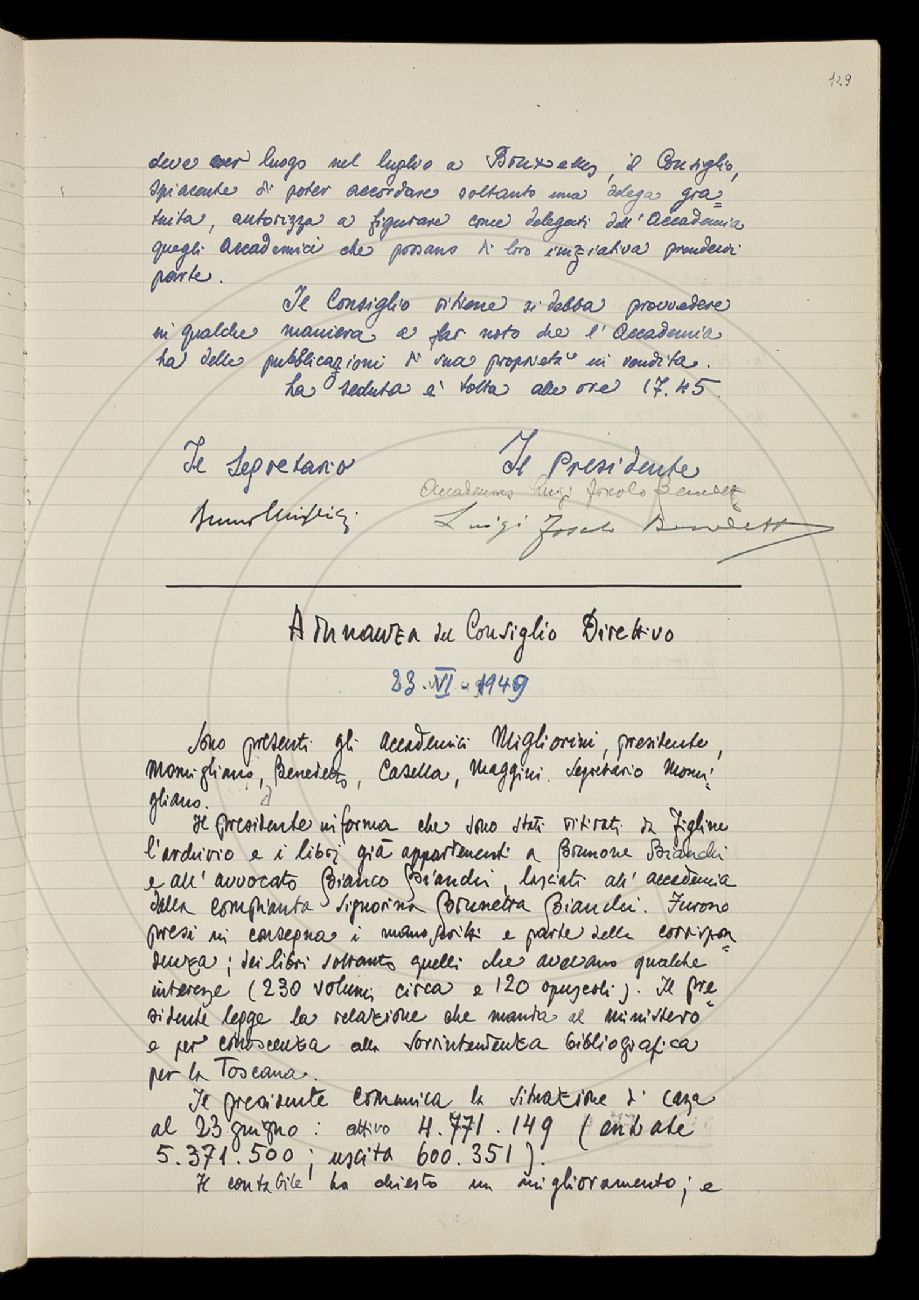 129
deve aver luogo nel luglio a Bruxelles, il Consiglio,
spiacente di poter accordare soltanto una delega gra=
tuita, autorizza a figurare come delegati dell'Accademia
quegli Accademici che possano di loro iniziativa prendervi
parte.
Il Consiglio ritiene si debba provvedere
in qualche maniera a far noto che l'Accademia
ha delle pubblicazioni di sua proprietà in vendita.
La seduta è tolta alle ore 17.45.
Il Segretario Il Presidente
Accademico Luigi Foscolo Benedetto
Bruno Migliorini Luigi Foscolo Benedetto
Adunanza del Consiglio Direttivo
23.VI.1949
Sono presenti gli Accademici Migliorini, presidente,
Momigliano, Benedetto, Casella, Maggini. Segretario Momi=
gliano.
Il presidente informa che sono stati ritirati da Figline
l'archivio e i libri già appartenenti a Brunone Bianchi
e all'avvocato Bianco Bianchi, lasciati all'accademia
dalla compianta Signorina Brunetta Bianchi. Furono
presi in consegna i manoscritti e parte della corrispon=
denza; dei libri soltanto quelli che avevano qualche
interesse (230 volumi circa e 120 opuscoli). Il pre=
sidente legge la relazione che manda al ministero
e per conoscenza alla Sovrintendenza bibliografica
per la Toscana.
Il presidente comunica la situazione di cassa
al 23 giugno: attivo 4.771.149 (entrate
5.371.500; uscita 600.351).
Il contabile ha chiesto un miglioramento; e